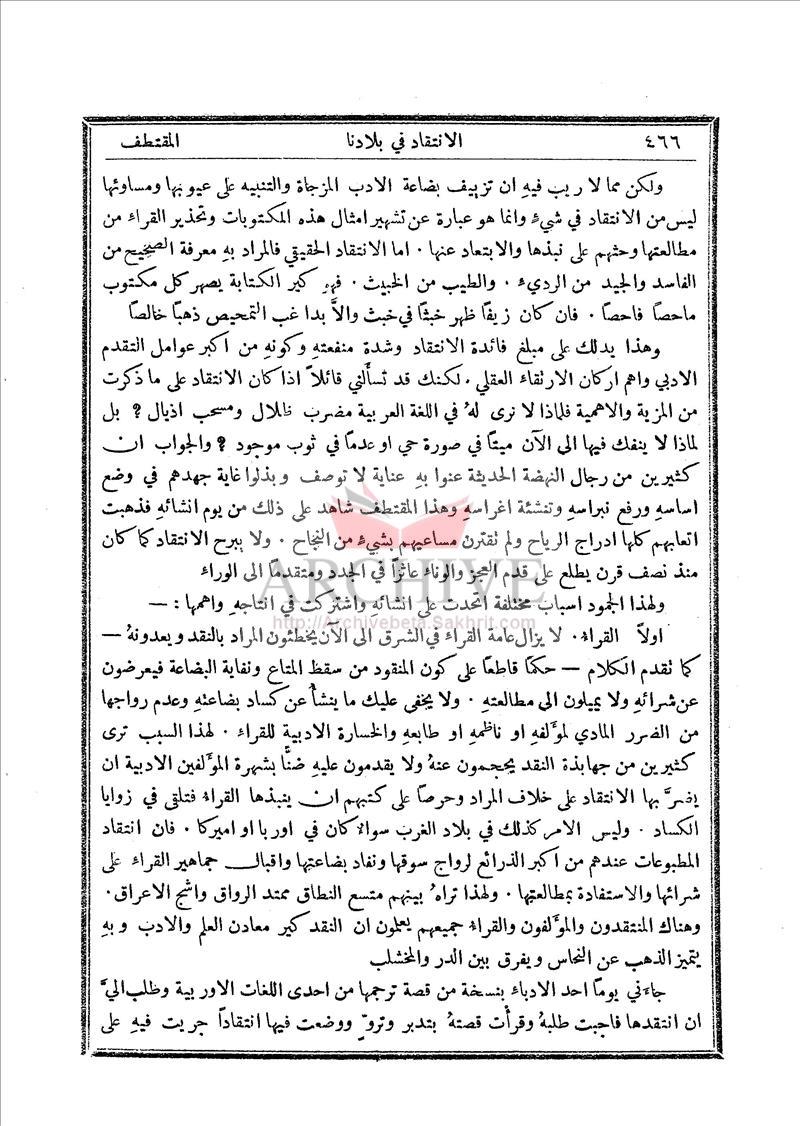 ٤٦٦ الانتقاد في بلادنا المقتطف
ولكن مما لا ريب فيهِ ان تزييف بضاعة الادب المزجاة والتنبيه على عيوبها ومساوئها
ليس من الانتقاد في شيءٍ وانما هو عبارة عن تشهير امثال هذه المكتوبات وتحذير القراء من
مطالعتها وحثهم على نبذها والابتعاد عنها ٠ اما الانتقاد الحقيقي فالمراد بهِ معرفة الصحيح من
الفاسد والجيد من الرديءِ ٠ والطيب من الخبيث ٠ فهو كير الكتابة يصهر كل مكتوب
ماحصاً فاحصاً ٠ فان كان زيفاً ظهر خبثاً في خبث والاَّ بدا غب التمحيص ذهباً خالصاً
وهذا يدلك على مبلغ فائدة الانتقاد وشدة منفعتهِ وكونهِ من اكبر عوامل التقدم
الادبي واهم اركان الارتقاء العقلي ٠ لكنك قد تسألني قائلاً اذا كان الانتقاد على ما ذكرت
من المزية والاهمية فلماذا لا نرى لهُ في اللغة العربية مضرب ظلال ومسحب اذيال ? بل
لماذا لا ينفك فيها الى الآن ميتاً في صورة حي او عدماً في ثوب موجود ? والجواب ان
كثيرين من رجال النهضة الحديثة عنوا بهِ عناية لا توصف وبذلوا غاية جهدهم في وضع
اساسهِ ورفع نبراسهِ وتنشئة اغراسهِ وهذا المقتطف شاهد على ذلك من يوم انشائهِ فذهبت
اتعابهم كلها ادراج الرياح ولم تقترن مساعيهم بشيءٍ من النجاح ٠ ولا يبرح الانتقاد كما كان
منذ نصف قرن يطلع على قدم العجز والوناء عاثراً في الجدد ومتقدماً الى الوراء
ولهذا الجمود اسباب مختلفة اتحدت على انشائهِ واشتركت في انتاجهِ واهمها : —
اولاً القراء ٠ لا يزال عامة القراء في الشرق الى الآن يخطئون المراد بالنقد ويعدونهُ —
كما تقدم الكلام — حكماً قاطعاً على كون المنقود من سقط المتاع ونفاية البضاعة فيعرضون
عن شرائهِ ولا يميلون الى مطالعتهِ ٠ ولا يخفى عليك ما ينشأ عن كساد بضاعتهِ وعدم رواجها
من الضرر المادي لمؤلفهِ او ناظمهِ او طابعهِ والخسارة الادبية للقراء ٠ لهذا السبب ترى
كثيرين من جهابذة النقد يحجمون عنهُ ولا يقدمون عليهِ ضنًّا بشهرة المؤلفين الادبية ان
يضرَّ بها الانتقاد على خلاف المراد وحرصاً على كتبهم ان ينبذها القراء فتلقى في زوايا
الكساد ٠ وليس الامر كذلك في بلاد الغرب سواءٌ كان في اوربا او اميركا ٠ فان انتقاد
المطبوعات عندهم من اكبر الذرائع لرواج سوقها ونفاد بضاعتها واقبال جماهير القراء على
شرائها والاستفادة بمطالعتها ٠ ولهذا تراهُ بينهم متسع النطاق ممتد الرواق واشج الاعراق٠
وهناك المنتقدون والمؤلفون والقراء جميعهم يعلمون ان النقد كير معادن العلم والادب وبهِ
يتميز الذهب عن النحاس ويفرق بين الدر والمخشلب
جاءني يوماً احد الادباء بنسخة من قصة ترجمها من احدى اللغات الاوربية وطلب اليَّ
ان انتقدها فاجبت طلبهُ وقرأت قصتهُ بتدبر وتروٍّ ووضعت فيها انتقاداً جريت فيهِ على
ARCHIVE
http://Archivebeta.Sakhrit.com